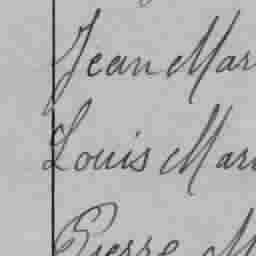 Jean Mar
Louis Mari
Pierre M